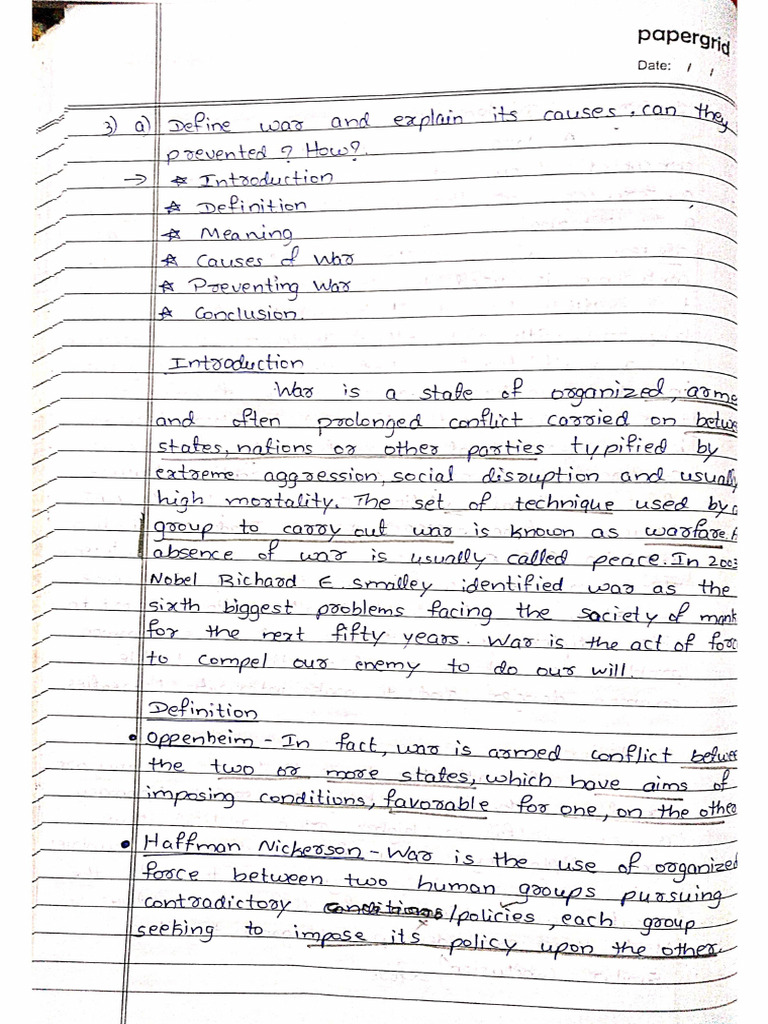 papergrid
Date: / /
3) a) Define war and explain its causes, can they
prevented? How?
→ ☆ Introduction
☆ Definition
☆ Meaning
☆ Causes of War
☆ Preventing War
☆ Conclusion.
Introduction
War is a state of organized, arme
and often prolonged conflict carried on betwe
states, nations or other parties typified by
extreme aggression, social disruption and usually
high mortality. The set of technique used by a
group to carry out war is known as warfare.
absence of war is usually called peace. In 2003
Nobel Richard E. smalley identified war as the
sixth biggest problems facing the society of mank
for the next fifty years. War is the act of forc
to compel our enemy to do our will.
Definition
• Oppenheim - In fact, war is armed conflict betwee
the two or more states, which have aims of
imposing conditions, favorable for one, on the other
• Haffman Nickerson - War is the use of organized
force between two human groups pursuing
contradictory conditions/policies, each group
seeking to impose its policy upon the other.